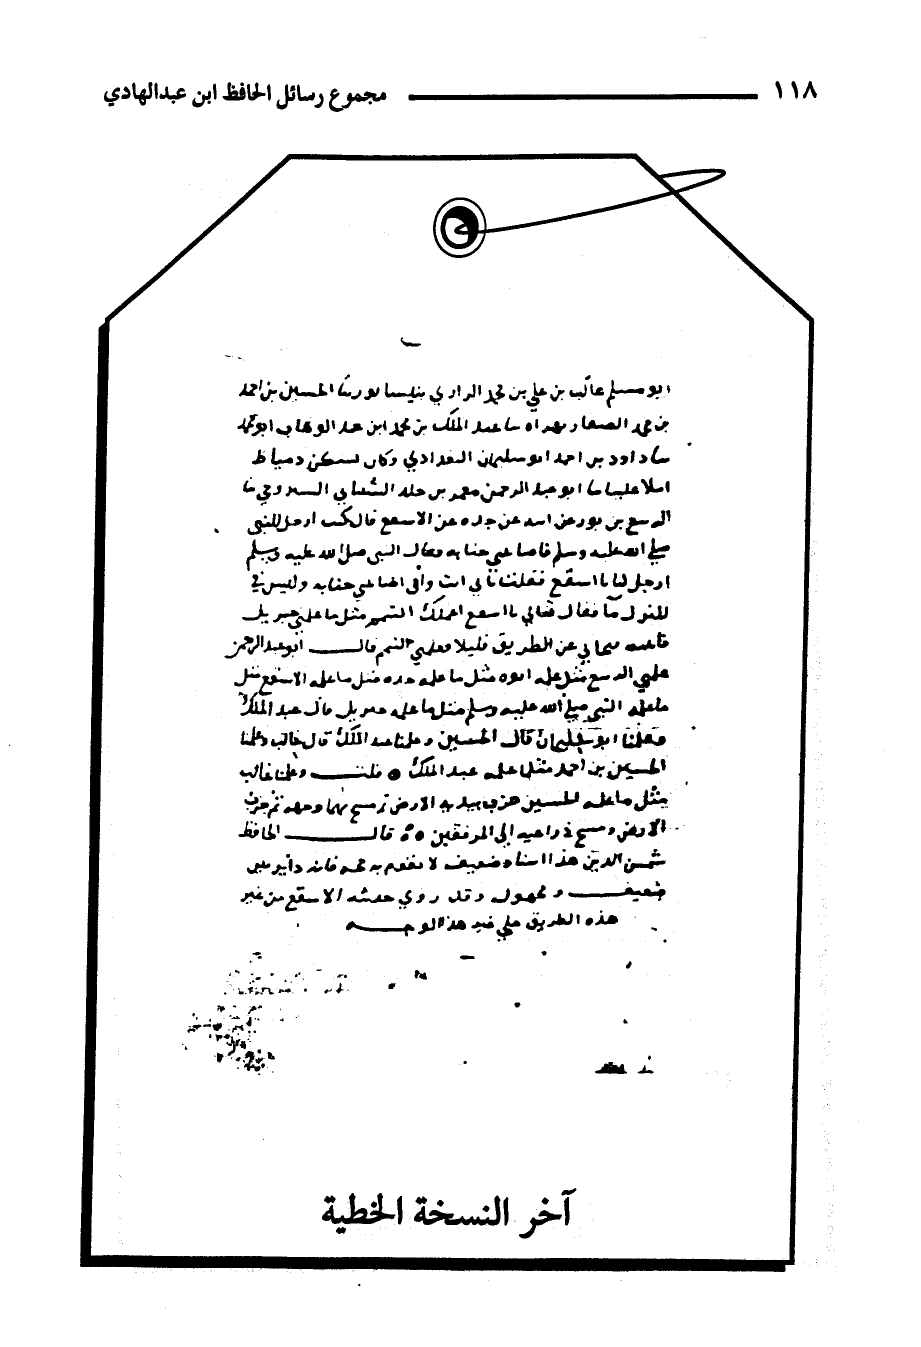 ١١٨ مجموع رسائل الحافظ ابن عبدالهادي
ابو مسلم غالب بن علي بن محمد الرازي بنيسابور نا الحسين بن احمد
بن محمد الصفار بهراه نا عبد الملك بن محمد ابن عبد الوهاب ابو محمد
نا داود بن احمد ابو سليمان البغدادي وكان يسكن دمياط
املا علينا نا ابو عبد الرحمن معمر بن السروجي نا
الربيع بن بدر عن ابيه عن جده عن الاسقع قال كنت ارحل للنبي
صلى الله عليه وسلم فاصابتني جنابه فقال النبي صلى الله عليه وسلم
ارحل لنا يا اسقع فقلت بابي انت وأمي اصابتني جنابه وليس في
المنزل ما فقال تعالى يا اسقع اعلمك التيمم مثل ما علمني جبريل
فاتيته فنحاني عن الطريق قليلا فعلمني التيمم قال ابو عبد الرحمن
علمني الربيع مثل علمه ابوه مثل ما علمه جده مثل ما علمه الاسقع مثل
ما علمه النبي صلى الله عليه وسلم مثل ما علمه جبريل قال عبد الملك
وعلمنا ابو سليمان قال الحسين وعلمنا عبد الملك قال غالب وعلمنا
الحسين بن أحمد مثل ما علمه عبد الملك قلت وعلمنا غالب
مثل ما علمه الحسين ضرب بيديه الارض ثم مسح بهما وجهه ثم ضرب
الارض ومسح ذراعيه إلى المرفقين قال الحافظ
شمس الدين هذا اسناد ضعيف لا تقوم به حجه فانه دائر بين
ضعيف ومجهول وقد روي حديث الاسقع من غير
هذه الطريق على غير هذا الوجه
آخر النسخة الخطية